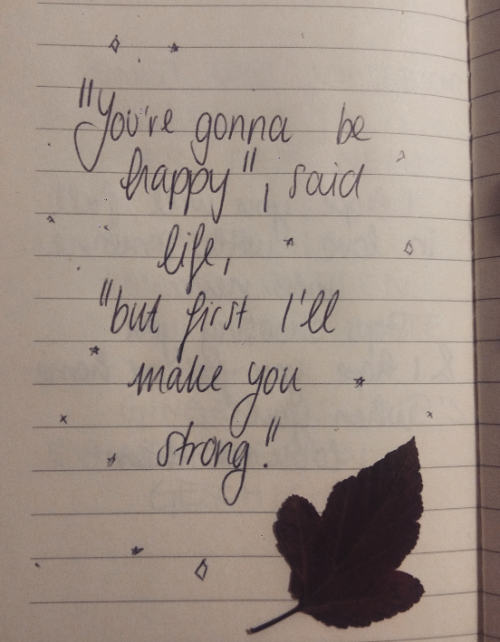 "You're gonna be
happy", said
life,
"but first I'll
make you
strong."